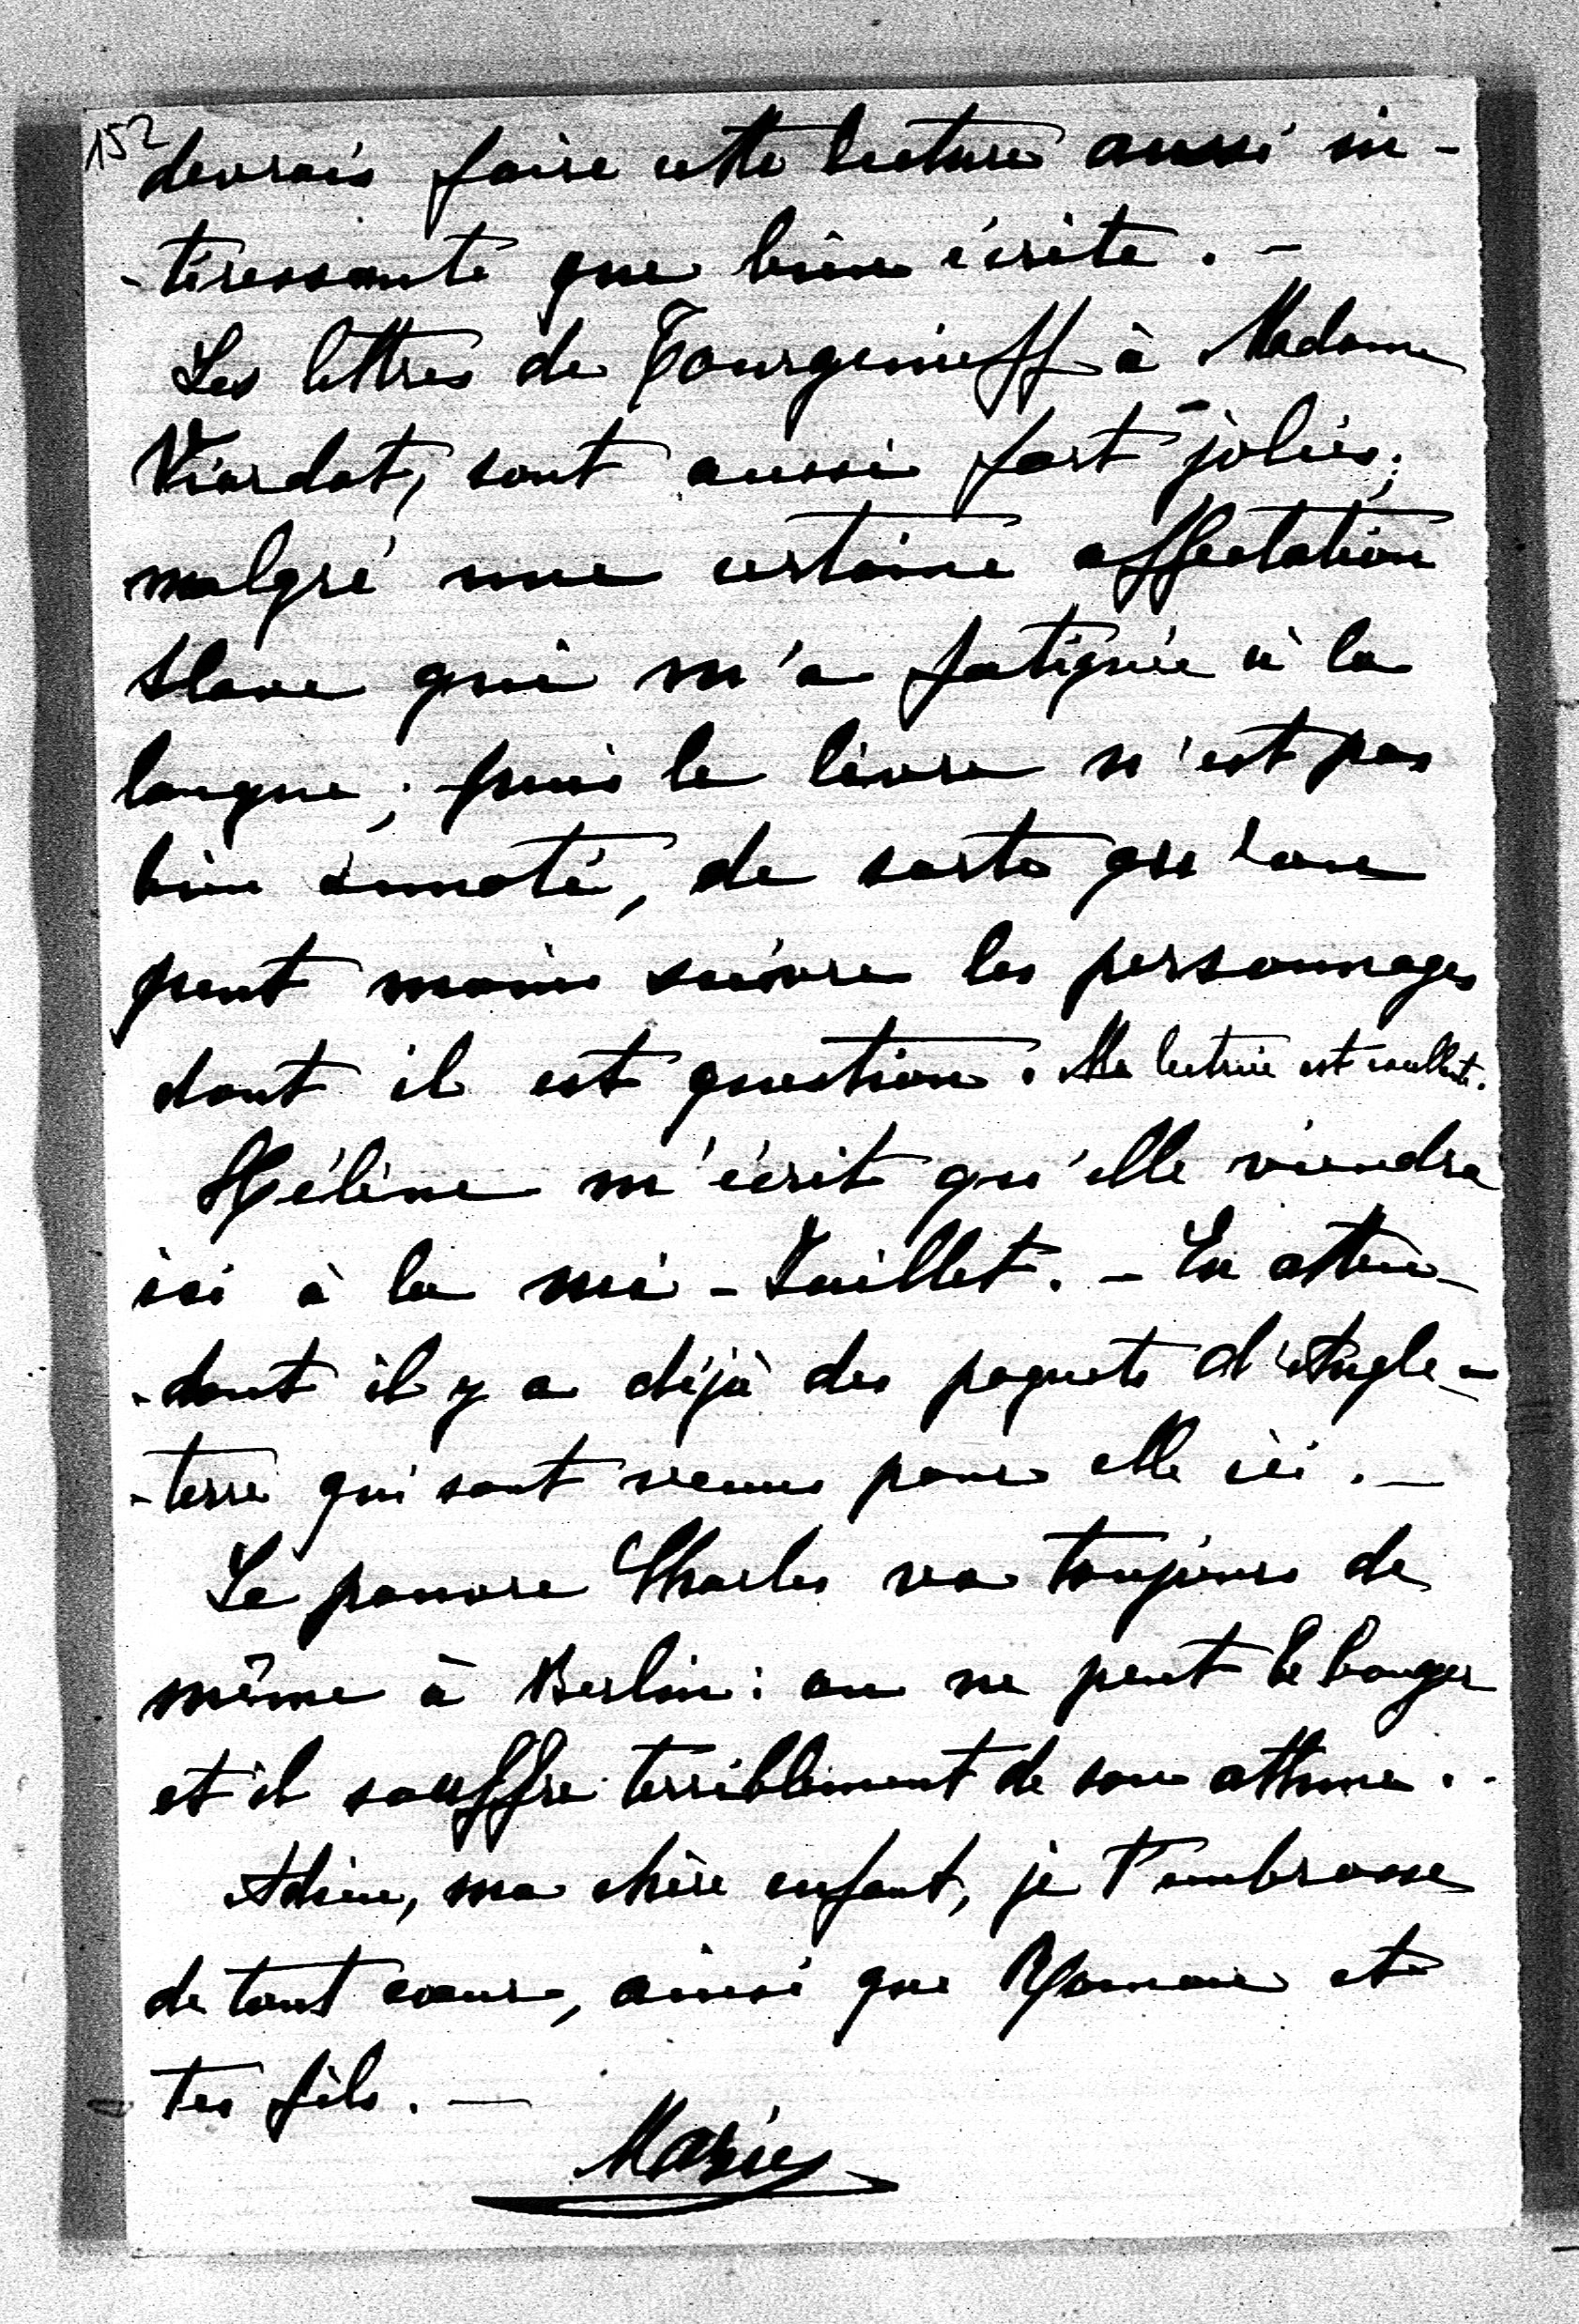 152
devrais faire cette lecture aussi in-
-téressante que bien écrite. -
Les lettres de Tourgenieff à Madame
Viardot, sont aussi fort jolies;
malgré une certaine affectation
slave qui m'a fatiguée à la
longue; puis le livre n'est pas
bien annoté, de sorte qu'on
peut moins suivre les personnages
dont il est question. Ma lectrice est excellente.
Hélène m'écrit qu'elle viendra
ici à la mi-Juillet. - En atten-
-dant il y a déjà des paquets d'Angle-
-terre qui sont venus pour elle ici. -
Le pauvre Charles va toujours de
même à Berlin: on ne peut le bouger
et il souffre terriblement de son asthme. -
Adieu, ma chère enfant, je t'embrasse
de tout coeur, ainsi que et
tes fils. -
Marie